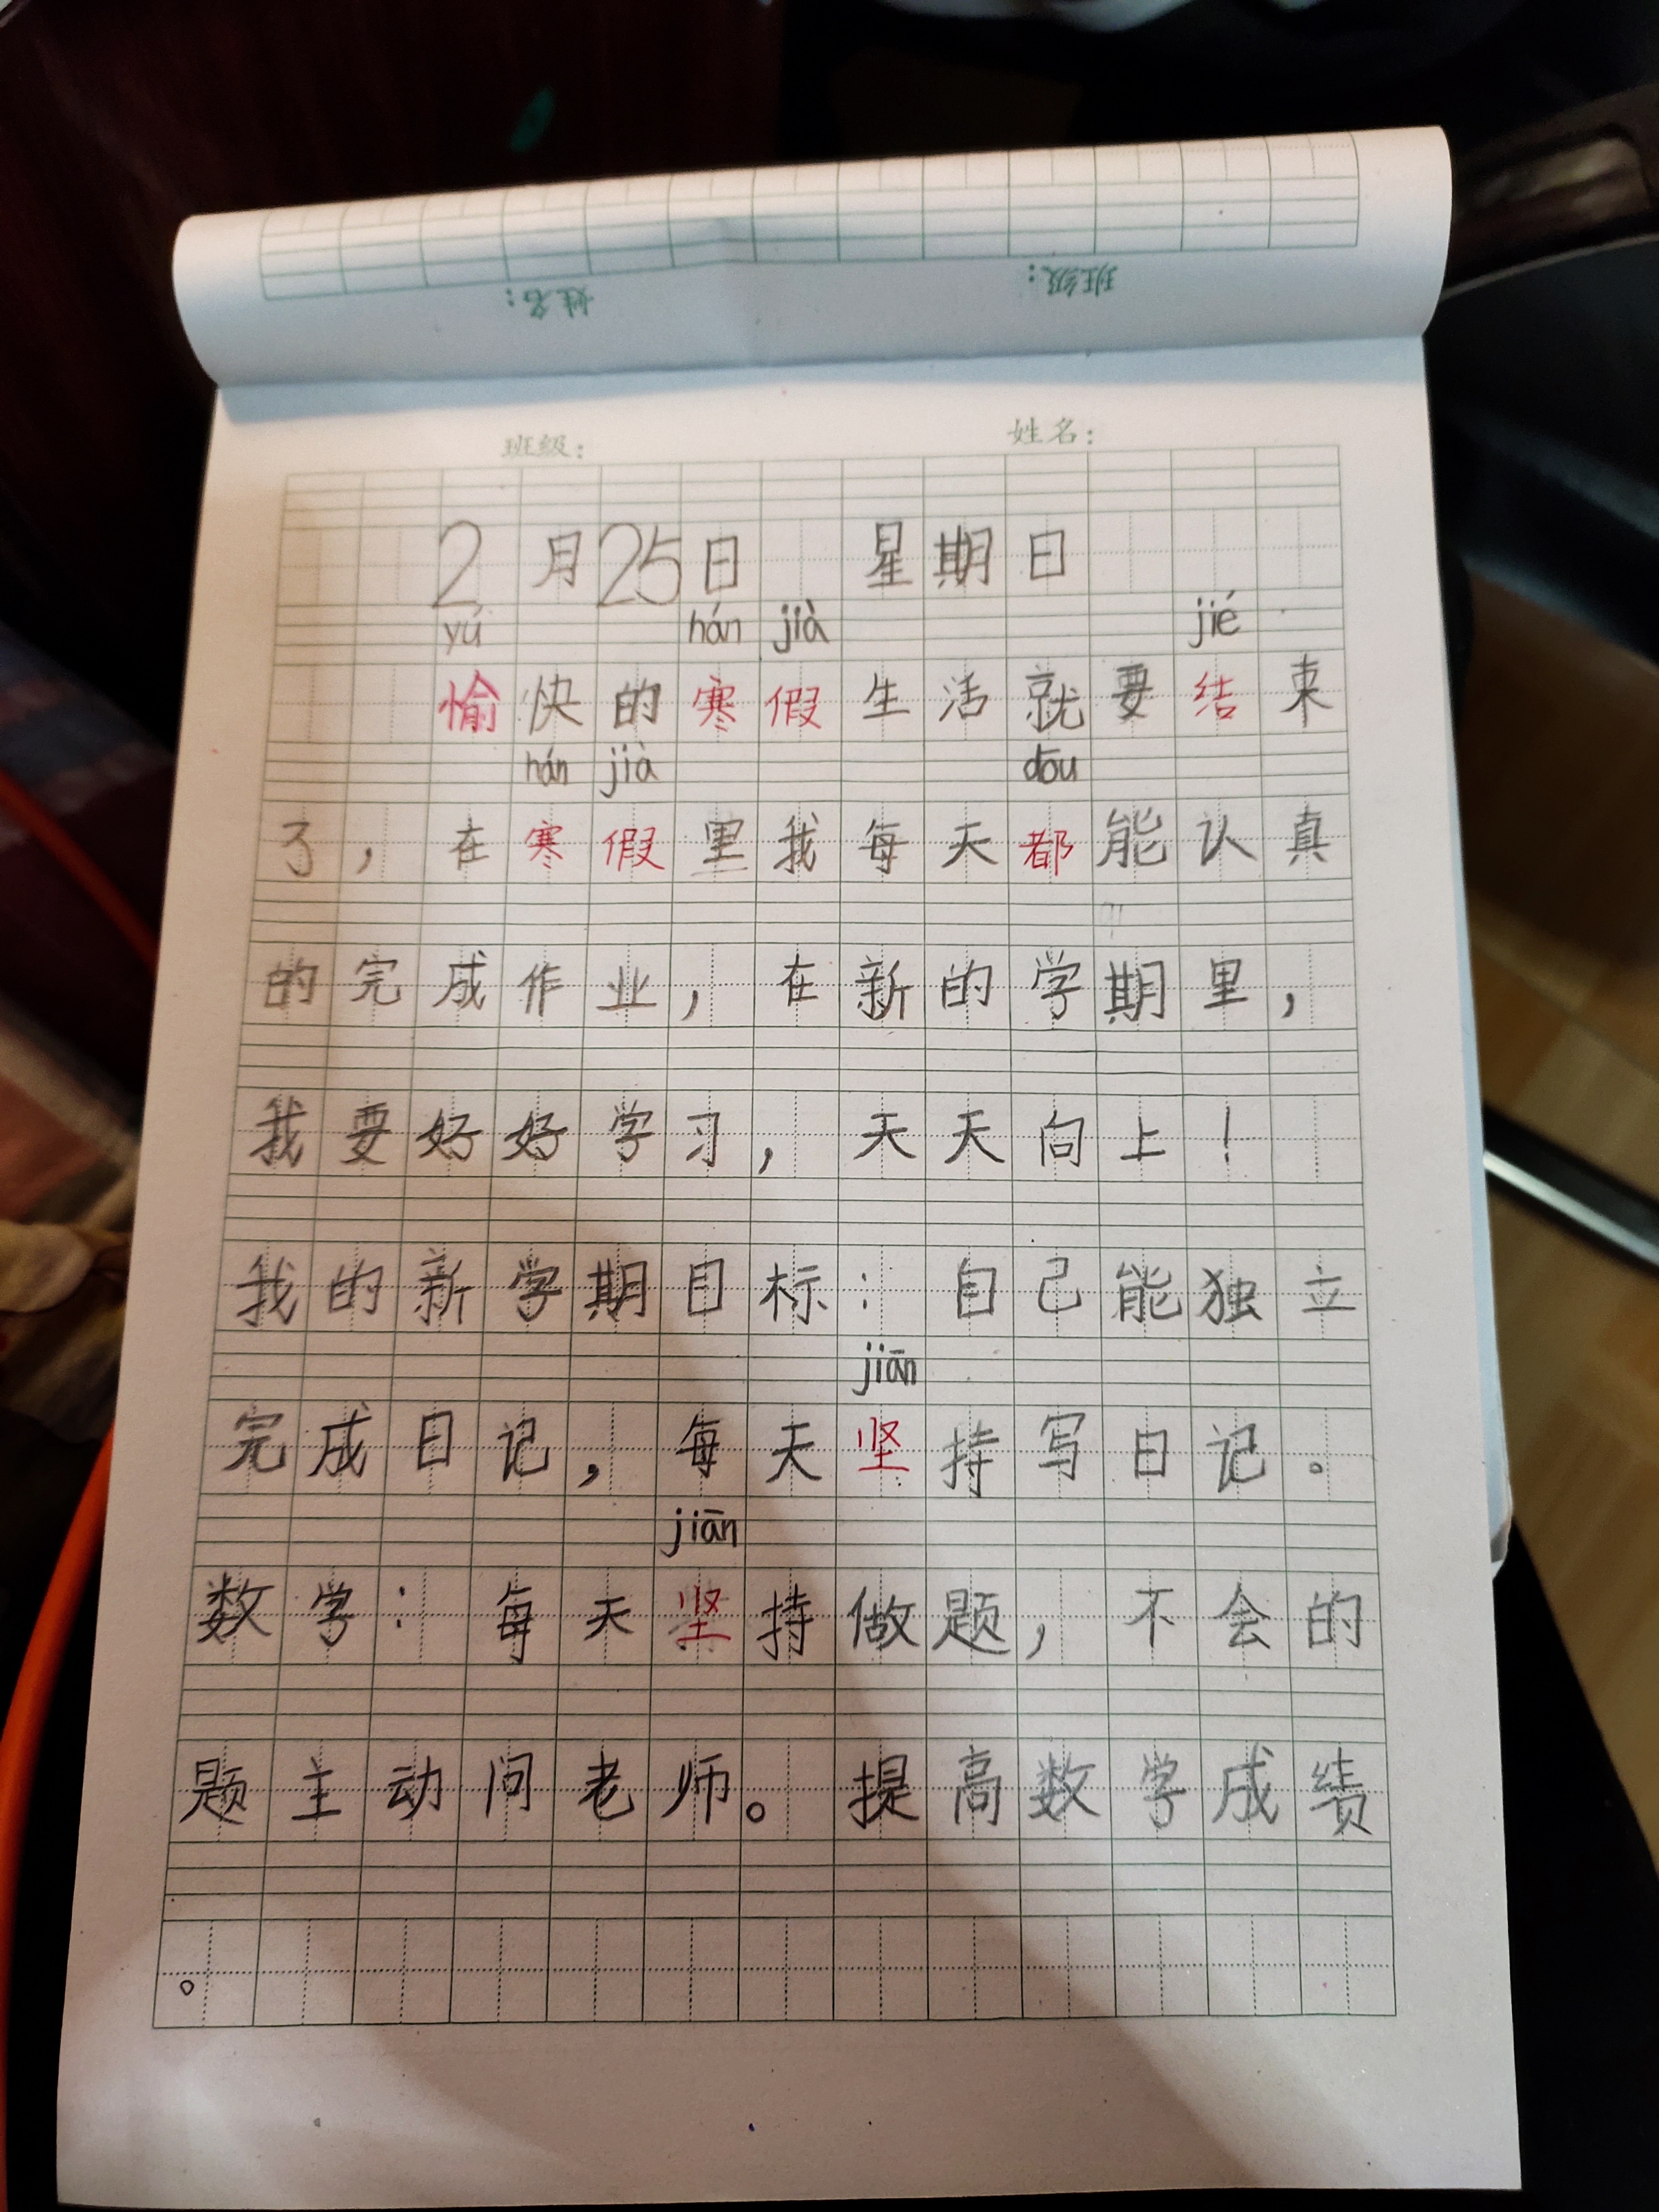 姓名：
班级：
班级：
姓名：
2月25日 星期日
yú hán jià jié
愉快的寒假生活就要结束
hán jià dōu
了，在寒假里我每天都能认真
的完成作业，在新的学期里，
我要好好学习，天天向上！
我的新学期目标：自己能独立
jiān
完成日记，每天坚持写日记。
jiān
数学：每天坚持做题，不会的
题主动问老师。提高数学成绩
。